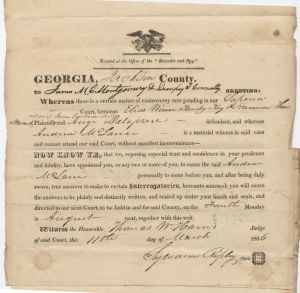 Printed at the Office of the "Recorder and Spy."
GEORGIA, Jackson County.
To James M. C. Montgomery & Dempsy J. Connally GREETING:
Whereas there is a certain matter of controversy now pending in our Superior
Court, between Elias Moore
Plaintiff and Defendant, and whereas
Andrew McLain is a material witness in said case
and cannot attend our said Court, without manifest inconvenience—
NOW KNOW YE, that we, reposing especial trust and confidence in your prudence
and fidelity, have appointed you, or any two or more of you, to cause the said Andrew
McLain personally to come before you, and after being duly
sworn, true answers to make to certain Interrogatories, hereunto annexed; you will cause
the answers to be plainly and distinctly written, and sealed up under your hands and seals, and
directed to our next Court, to be held in and for said County, on the Fourth Monday
in August next, together with this writ.
Witness the Honorable Thomas W. Harris Judge
of said Court, this 11th day of March 1836
Sylvanus Ripley Clerk